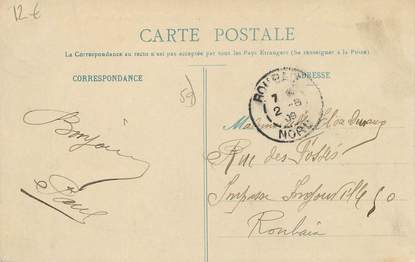 12 €
CARTE POSTALE
La Correspondance au recto n'est pas acceptée par tous les Pays Étrangers (Se renseigner à la Poste)
CORRESPONDANCE
ADRESSE
59
ROUBAIX
7
2 -8
09
NORD
Bonjour
Rue des Fossés
Impasse
Roubaix